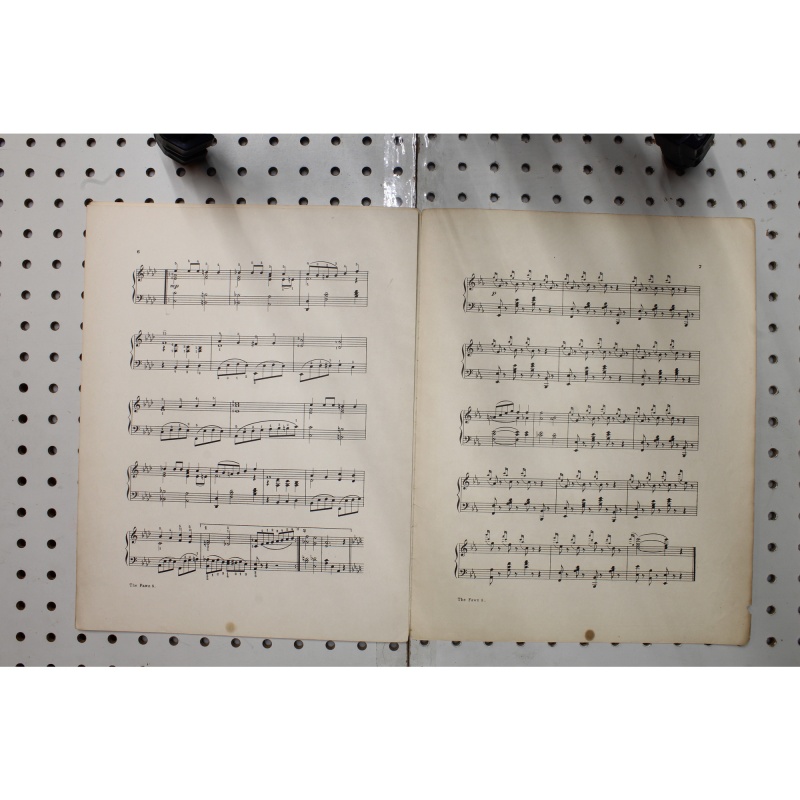 6
mp
The Fawn 5.
7
p
The Fawn 5.